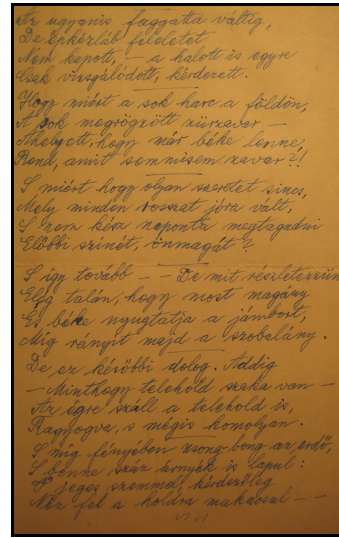 Az ugyanis faggatta váltig,
De épkézláb feleletet
Nem kapott, – a halott is egyre
Csak vizsgálódott, kérdezett.
Hogy miért a sok harc a földön,
A sok megrögzött zűrzavar –
Ahelyett, hogy már béke lenne,
Rend, amit semmisem zavar?!
S miért hogy olyan szeretet sincs,
Mely minden rosszat jóra vált,
S nem kész naponta megtagadni
Előbbi színét, önmagát?
S így tovább – – De mit részletezzünk
Elég talán, hogy most magány
És béke nyugtatja a jámbort,
Míg rányit majd a szobalány.
De ez későbbi dolog. Addig
– Minthogy telehold szaka van –
Az égre száll a telehold is,
Ragyogva, s mégis komolyan.
S míg fényében zsong-bong az erdő,
S benne száz árnyék is lapul:
jeges szemmel, kérdezőleg
Néz fel a holdra makacsul – –